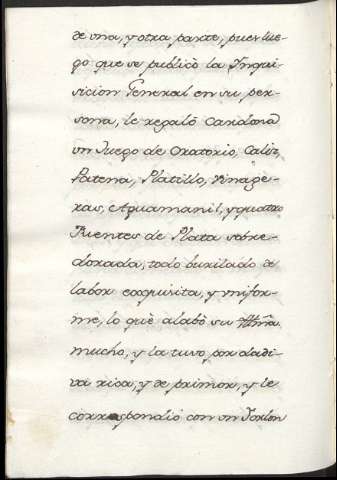 de una, y otra parte, pues lue-
go que se publicò la Inqui-
sicion General en su per-
sona, le regalò Cardona
un Juego de Oratorio, Caliz,
Patena, Platillo, Vinage-
ras, Aguamanil, y quatro
Fuentes de Plata sobre-
dorada, todo burilado de
labor exquisita, y unifor-
me, lo què alabò su
mucho, y la tuvo por dadi-
va rica, y de primor, y le
correspondiò con un